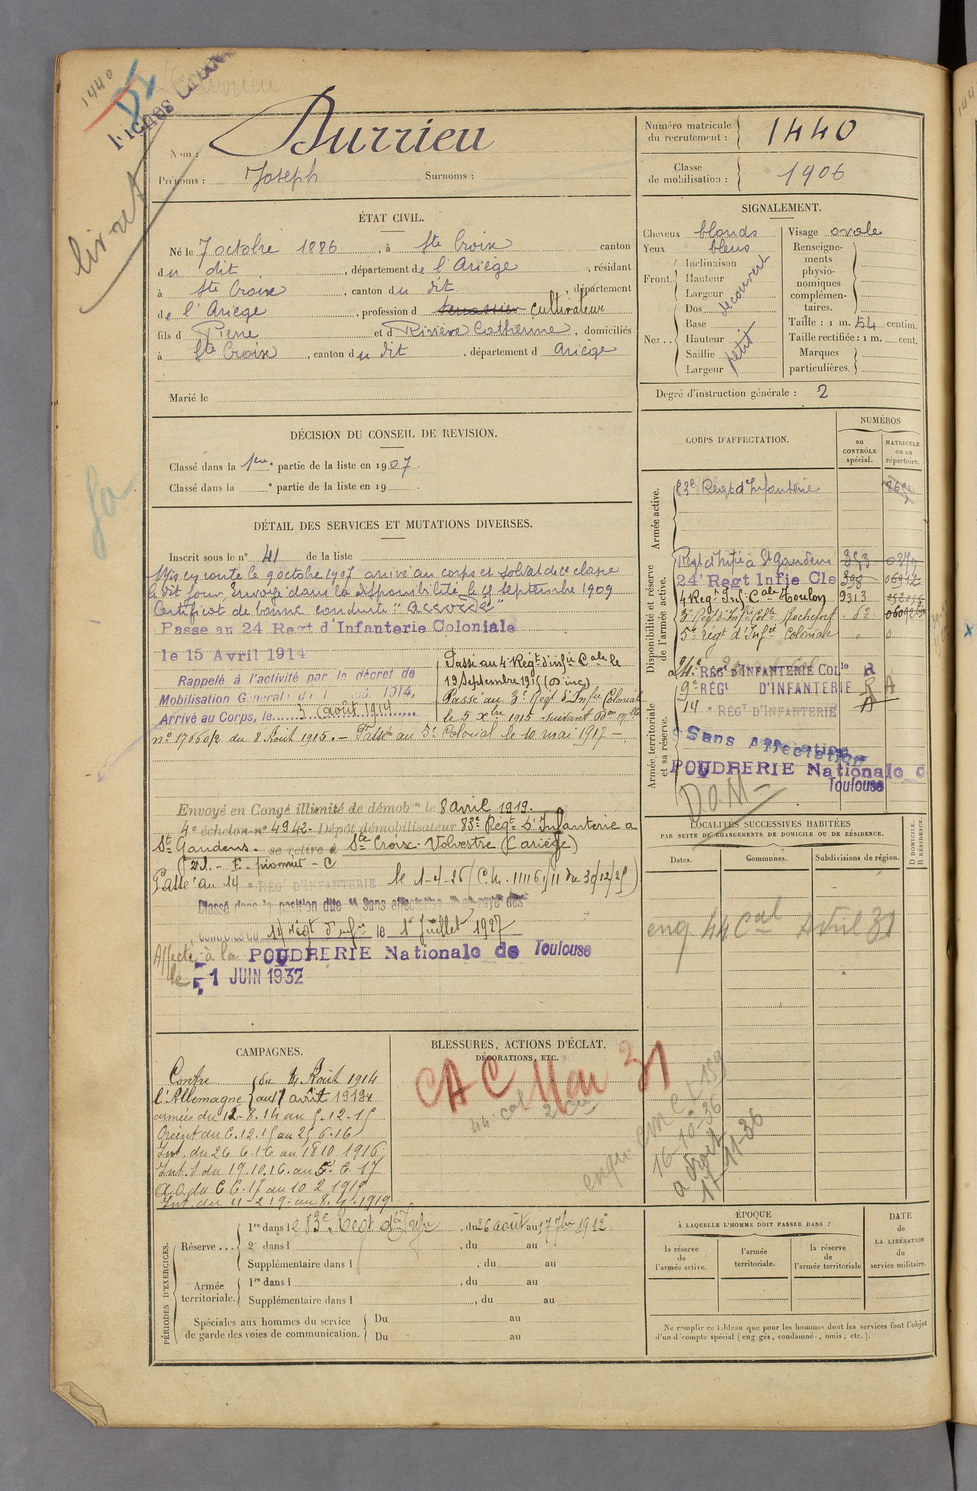 1440
livret
Nom : Durrieu
Prénoms : Joseph Surnoms :
Numéro matricule du recrutement : 1440
Classe de mobilisation : 1906
ÉTAT CIVIL.
Né le 7 octobre 1886, à Ste Croix canton
du dit, département de l'Ariège, résidant
à Ste Croix, canton du dit, département
de l'Ariège, profession d terrassier cultivateur
fils d Pierre et d Rivière Catherine, domiciliés
à Ste Croix, canton du dit, département d Ariège
Marié le
SIGNALEMENT.
Cheveux blonds Visage ovale
Yeux bleus
Front. Inclinaison Hauteur Largeur découvert
Nez.. Dos Base Hauteur Saillie Largeur petit
Renseignements physionomiques complémentaires.
Taille : 1 m. 54 centim.
Taille rectifiée : 1 m. cent.
Marques particulières.
Degré d'instruction générale : 2
DÉCISION DU CONSEIL DE REVISION.
Classé dans la 1ere partie de la liste en 1907.
Classé dans la e partie de la liste en 19
DÉTAIL DES SERVICES ET MUTATIONS DIVERSES.
Inscrit sous le n° 41 de la liste
Mis en route le 9 octobre 1907 arrivé au corps et soldat de 2e classe
le dit jour, Envoyé dans la disponibilité le 25 septembre 1909
Certificat de bonne conduite "accordé"
Passe au 24 Regt d'Infanterie Coloniale
le 15 Avril 1914
Rappelé à l'activité par le décret de
Mobilisation Générale du 1 août 1914,
Arrivé au Corps, le 3 août 1914
Passé au 4 Regt d'infie Cale le
19 Septembre 1915
Passé au 3e Regt d'Infie Coloniale
le 5 Xbre 1915 suivant
n° 17060/2 du 8 Août 1915. – Passé au 5e Colonial le 10 mai 1917 –
Envoyé en Congé illimité de démobon le 8 avril 1919.
4e échelon n° 4942 Dépôt démobilisateur 83e Regt d'Infanterie a
St Gaudens. se retire à Ste Croix Volvestre (Ariège)
Passé au 14 e RÉGt D'INFANTERIE le 1-4-26 (C.M. 11116 1/11 du 30/12/25)
Classé dans la position dite "Sans affectation"
14 Régt d'infie le 1er Juillet 1927
Affecté à la POUDRERIE Nationale de Toulouse
le 1 JUIN 1932
CORPS D'AFFECTATION.
NUMÉROS
au CONTRÔLE spécial.
MATRICULE ou au répertoire.
Armée active.
83e Régt d'Infanterie
Disponibilité et réserve de l'armée active.
Regt d'Infie à St Gaudens 353
24e Regt Infie Cle 398
4 Reg. Inf. Cale Toulon 9313
3e Reg d'Inf. Cole Rochefort 62
5e régt d'Infie Coloniale
Armée territoriale et sa réserve.
24e RÉGt D'INFANTERIE COLle R
9e RÉGt D'INFANTERIE R A
14 e RÉGt D'INFANTERIE A
Sans Affectation
POUDRERIE Nationale d
Toulouse
LOCALITÉS SUCCESSIVES HABITÉES
PAR SUITE DE CHANGEMENTS DE DOMICILE OU DE RÉSIDENCE.
Dates. Communes. Subdivisions de région.
D DOMICILE. R RÉSIDENCE.
44 Cal Avril 31
CAMPAGNES.
Contre l'Allemagne du 4 Août 1914
armées du 12-8-14 au 5-12-15
Orient du 6.12.15 au 25.6.16
Int. du 26.6.16 au 18 10 1916
Int. du 19.10.16 au 5.6.17
A.O. du 6.6.17 au 10 2 1919
Int. du 11-2 19 au 8.4.1919
BLESSURES, ACTIONS D'ÉCLAT, DÉCORATIONS, ETC.
CAC Mai 31
16-10-36
17-11-36
PÉRIODES D'EXERCICES.
Réserve ... 1re dans l e 83e Regt d'Infie, du 26 août au 17 7bre 1912
2e dans l , du au
Supplémentaire dans l , du au
Armée territoriale. 1re dans l , du au
Supplémentaire dans l , du au
Spéciales aux hommes du service de garde des voies de communication. Du au
Du au
ÉPOQUE
À LAQUELLE L'HOMME DOIT PASSER DANS :
la réserve de l'armée active.
l'armée territoriale.
la réserve de l'armée territoriale
DATE de LA LIBÉRATION du service militaire.
Ne remplir ce tableau que pour les hommes dont les services font l'objet
d'un décompte spécial (engagés, condamnés, omis, etc.).